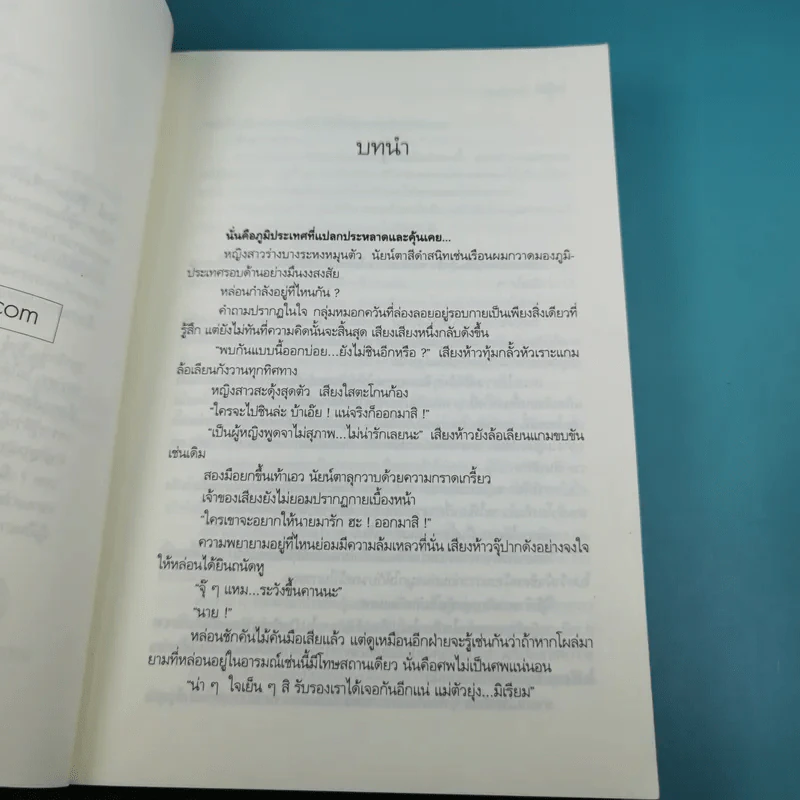 .com
บทนำ
นั่นคือภูมิประเทศที่แปลกประหลาดและคุ้นเคย...
หญิงสาวร่างบางระหงหมุนตัว นัยน์ตาสีดำสนิทเช่นเรือนผมกวาดมองภูมิ-
ประเทศรอบด้านอย่างมึนงงสงสัย
หล่อนกำลังอยู่ที่ไหนกัน ?
คำถามปรากฏในใจ กลุ่มหมอกควันที่ล่องลอยอยู่รอบกายเป็นเพียงสิ่งเดียวที่
รู้สึก แต่ยังไม่ทันที่ความคิดนั้นจะสิ้นสุด เสียงเสียงหนึ่งกลับดังขึ้น
"พบกันแบบนี้ออกบ่อย...ยังไม่ชินอีกหรือ ?" เสียงห้าวทุ้มกลั้วหัวเราะแกม
ล้อเลียนกังวานทุกทิศทาง
หญิงสาวสะดุ้งสุดตัว เสียงใสตะโกนก้อง
"ใครจะไปชินล่ะ บ้าเอ๊ย ! แน่จริงก็ออกมาสิ !"
"เป็นผู้หญิงพูดจาไม่สุภาพ...ไม่น่ารักเลยนะ" เสียงห้าวยังล้อเลียนแกมขบขัน
เช่นเดิม
สองมือยกขึ้นเท้าเอว นัยน์ตาลุกวาบด้วยความกราดเกรี้ยว
เจ้าของเสียงยังไม่ยอมปรากฏกายเบื้องหน้า
"ใครเขาจะอยากให้นายมารัก ฮะ ! ออกมาสิ !"
ความพยายามอยู่ที่ไหนย่อมมีความล้มเหลวที่นั่น เสียงห้าวจุ๊ปากดังอย่างจงใจ
ให้หล่อนได้ยินถนัดหู
"จุ๊ ๆ แหม...ระวังขึ้นคานนะ"
"นาย !"
หล่อนชักคันไม้คันมือเสียแล้ว แต่ดูเหมือนอีกฝ่ายจะรู้เช่นกันว่าถ้าหากโผล่มา
ยามที่หล่อนอยู่ในอารมณ์เช่นนี้มีโทษสถานเดียว นั่นคือศพไม่เป็นศพแน่นอน
"น่า ๆ ใจเย็น ๆ สิ รับรองเราได้เจอกันอีกแน่ แม่ตัวยุ่ง...มิเรียม"